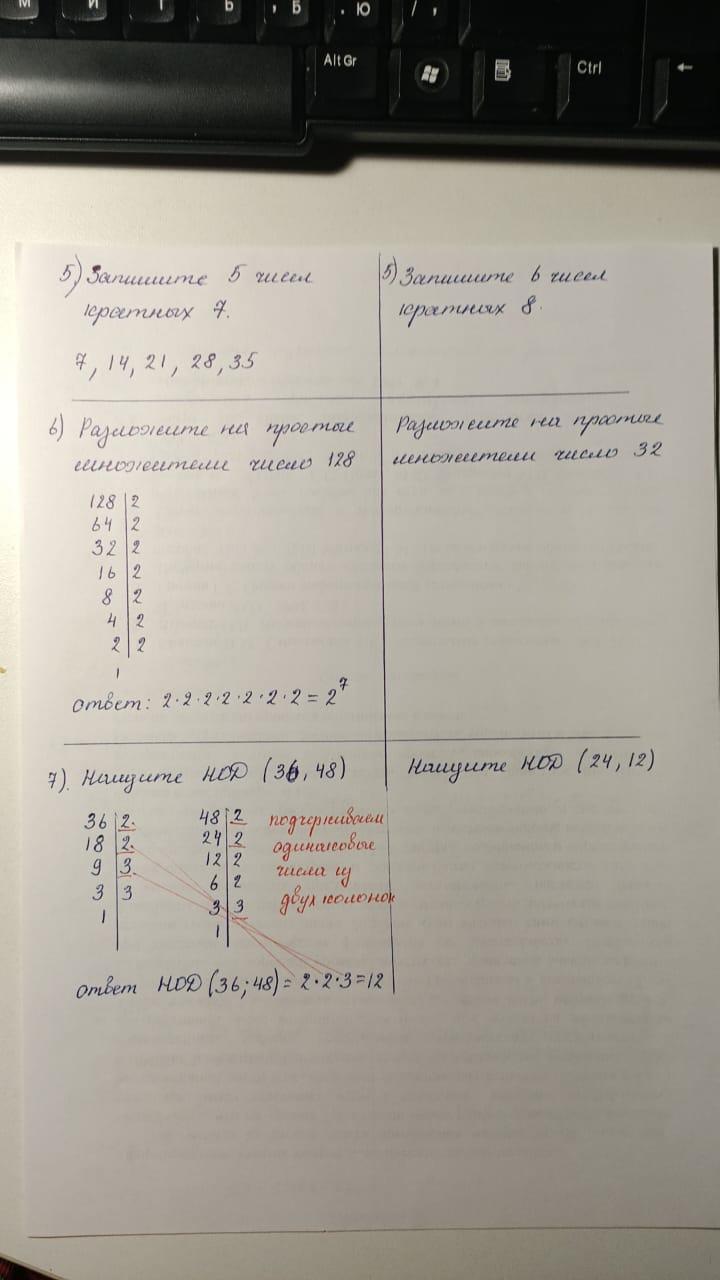 м
и
т
ь
, Б
. Ю
/ ,
Alt Gr
Ctrl
←
5) Запишите 5 чисел
кратных 7.
7, 14, 21, 28, 35
5) Запишите 6 чисел
кратных 8.
6) Разложите на простые
множители число 128
128 | 2
64 | 2
32 | 2
16 | 2
8 | 2
4 | 2
2 | 2
1
ответ: 2·2·2·2·2·2·2 = 2⁷
Разложите на простые
множители число 32
7). Найдите НОД (36, 48)
36 | 2
18 | 2
9 | 3
3 | 3
1
48 | 2
24 | 2
12 | 2
6 | 2
3 | 3
1
подчеркиваем
одинаковые
числа из
двух колонок
ответ НОД (36; 48) = 2·2·3=12
Найдите НОД (24, 12)